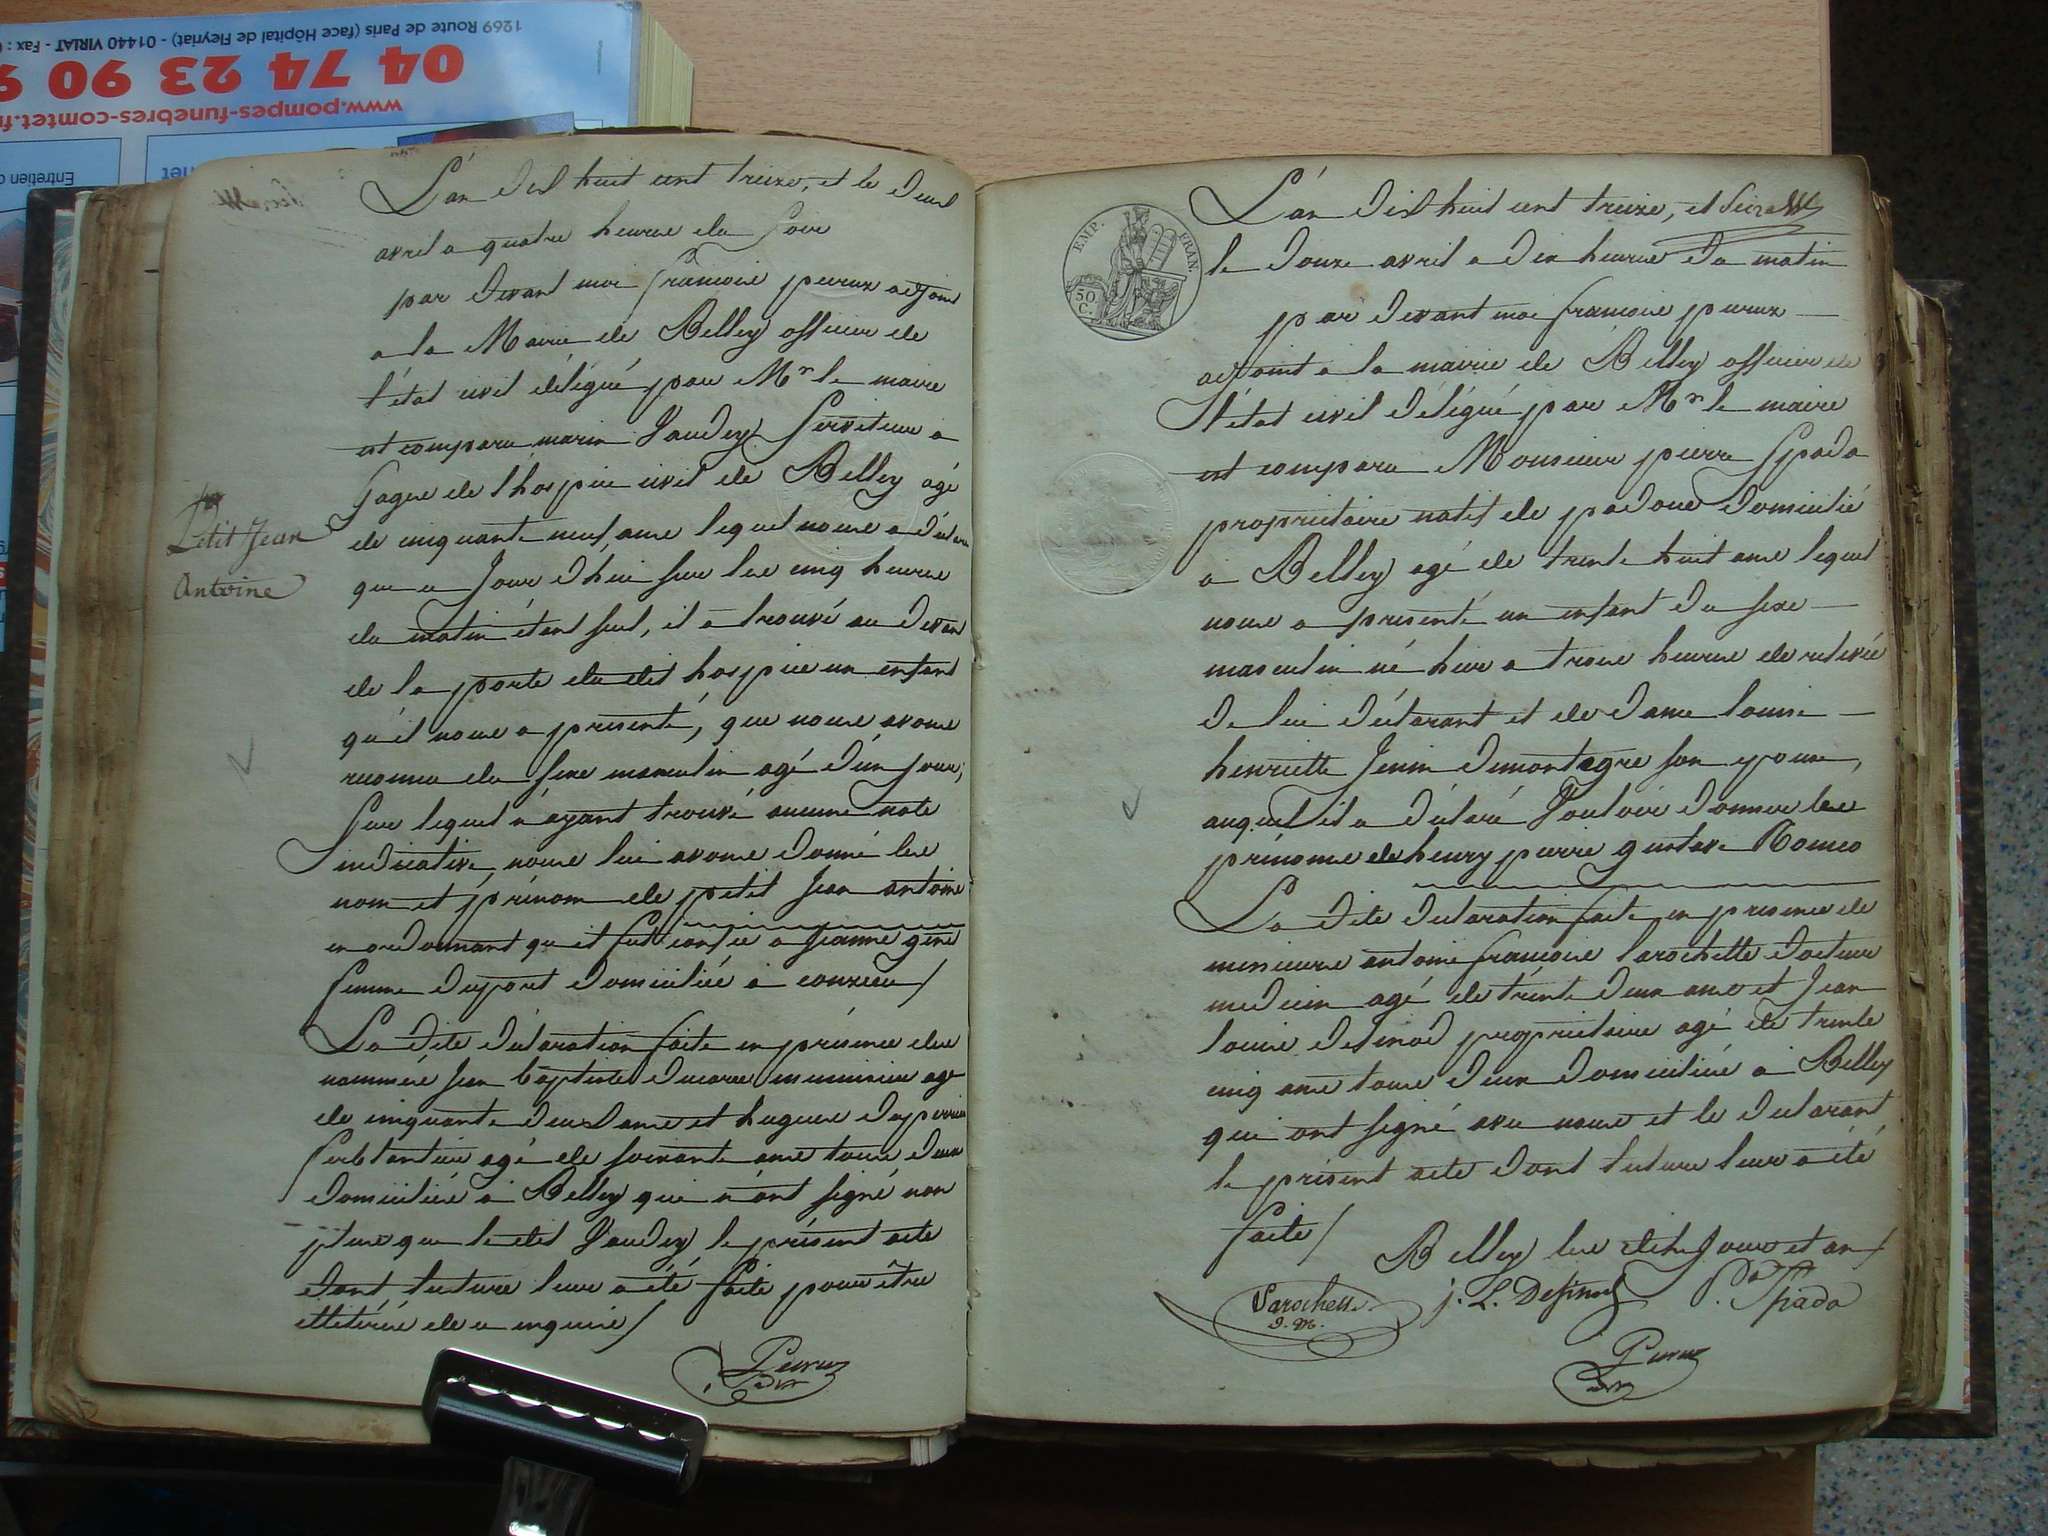 1269 Route de Paris (face Hôpital de Fleyriat) - 01440 VIRIAT - Fax :
04 74 23 90 9
www.pompes-funebres-comtet.fr
Entretien
net
L'an dix huit cent treize, et le deux
avril a quatre heures du soir
par devant moi françois peiruz adjoint
a la Mairie de Belley officier de
l'état civil délégué par Mr le maire
est comparu marin Vaudey Serviteur a
Gages de l'hospice civil de Belley agé
de cinquante neuf ans lequel nous a déclaré
que ce Jour d'hui sur les cinq heures
du matin étant seul, il a trouvé au devant
de la porte du dit hospice un enfant
qu'il nous a présenté, que nous avons
reconnu du sexe masculin agé d'un jour,
sur lequel n'ayant trouvé aucune note
indicative, nous lui avons donné les
nom et prénom de petit Jean antoine
en ordonnant qu'il fut confié a Jeanne
femme duport domiciliée à conzieu /
La dite déclaration faite en présence des
nommés Jean baptiste ducarre menuisier agé
de cinquante deux ans et hugues duperrier
Substantier agé de soixante ans tous deux
domiciliés à Belley qui n'ont signé non
plus que le dit Vaudey le présent acte
dont lecture leur a été faite pour être
illitérés de ce enquis /
Peiruz
adjt
Petit Jean
Antoine
EMP. FRAN.
50 C.
L'an dix huit cent treize, et
le douze avril a dix heures du matin
par devant moi françois peiruz
adjoint a la mairie de Belley officier de
l'état civil délégué par Mr le maire
est comparu Monsieur pierre Spada
propriétaire natif de padoue domicilié
a Belley agé de trente huit ans lequel
nous a présenté un enfant du sexe
masculin né hier a trois heures de relevée
de lui déclarant et de dame louise
henriette Jenin demontegre son epouse,
auquel il a déclaré Vouloir donner les
prénoms de henry pierre gustave Romeo
La dite déclaration faite en présence de
messieurs antoine françois larochette docteur
medecin agé de trente deux ans et Jean
louis desinod propriétaire agé de trente
cinq ans tous deux domiciliés à Belley
qui ont signé avec nous et le déclarant
le présent acte dont lecture leur a été
faite /
Belley les dits Jour et an /
Larochette
D. M.
J. L. Desinod
P. Spada
Peiruz
adjt